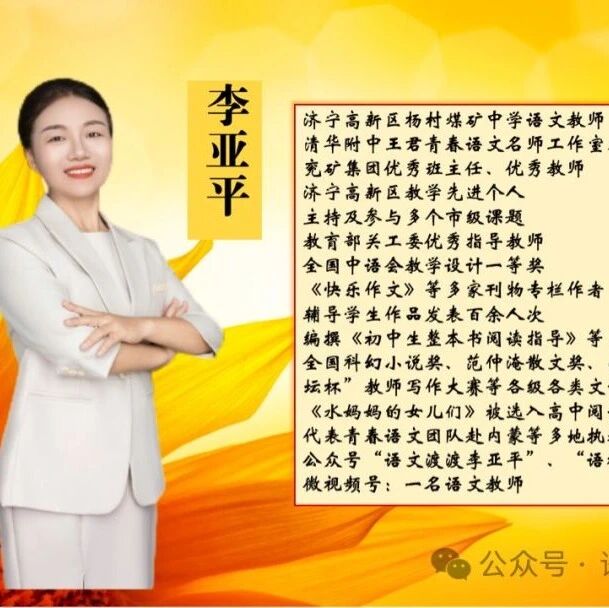 李亚平
济宁高新区杨村煤矿中学语文教师
清华附中王君青春语文名师工作室
兖矿集团优秀班主任、优秀教师
济宁高新区教学先进个人
主持及参与多个市级课题
教育部关工委优秀指导教师
全国中语会教学设计一等奖
《快乐作文》等多家刊物专栏作者
辅导学生作品发表百余人次
编撰《初中生整本书阅读指导》等
全国科幻小说奖、范仲淹散文奖、
坛杯”教师写作大赛等各级各类文
《水妈妈的女儿们》被选入高中阅
代表青春语文团队赴内蒙等多地执
公众号“语文渡渡李亚平”、“语
微视频号：一名语文教师
公众号·